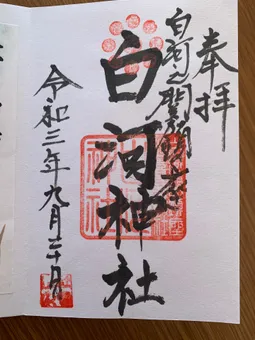 奉拝
白河之関鎮座
白河神社
令和三年九月二十日